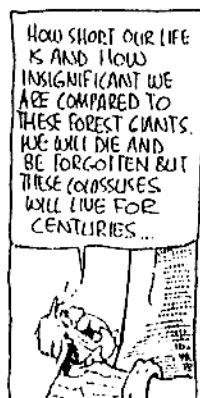 HOW SHORT OUR LIFE
IS AND HOW
INSIGNIFICANT WE
ARE COMPARED TO
THESE FOREST GIANTS.
WE WILL DIE AND
BE FORGOTTEN BUT
THESE COLOSSUSES
WILL LIVE FOR
CENTURIES...